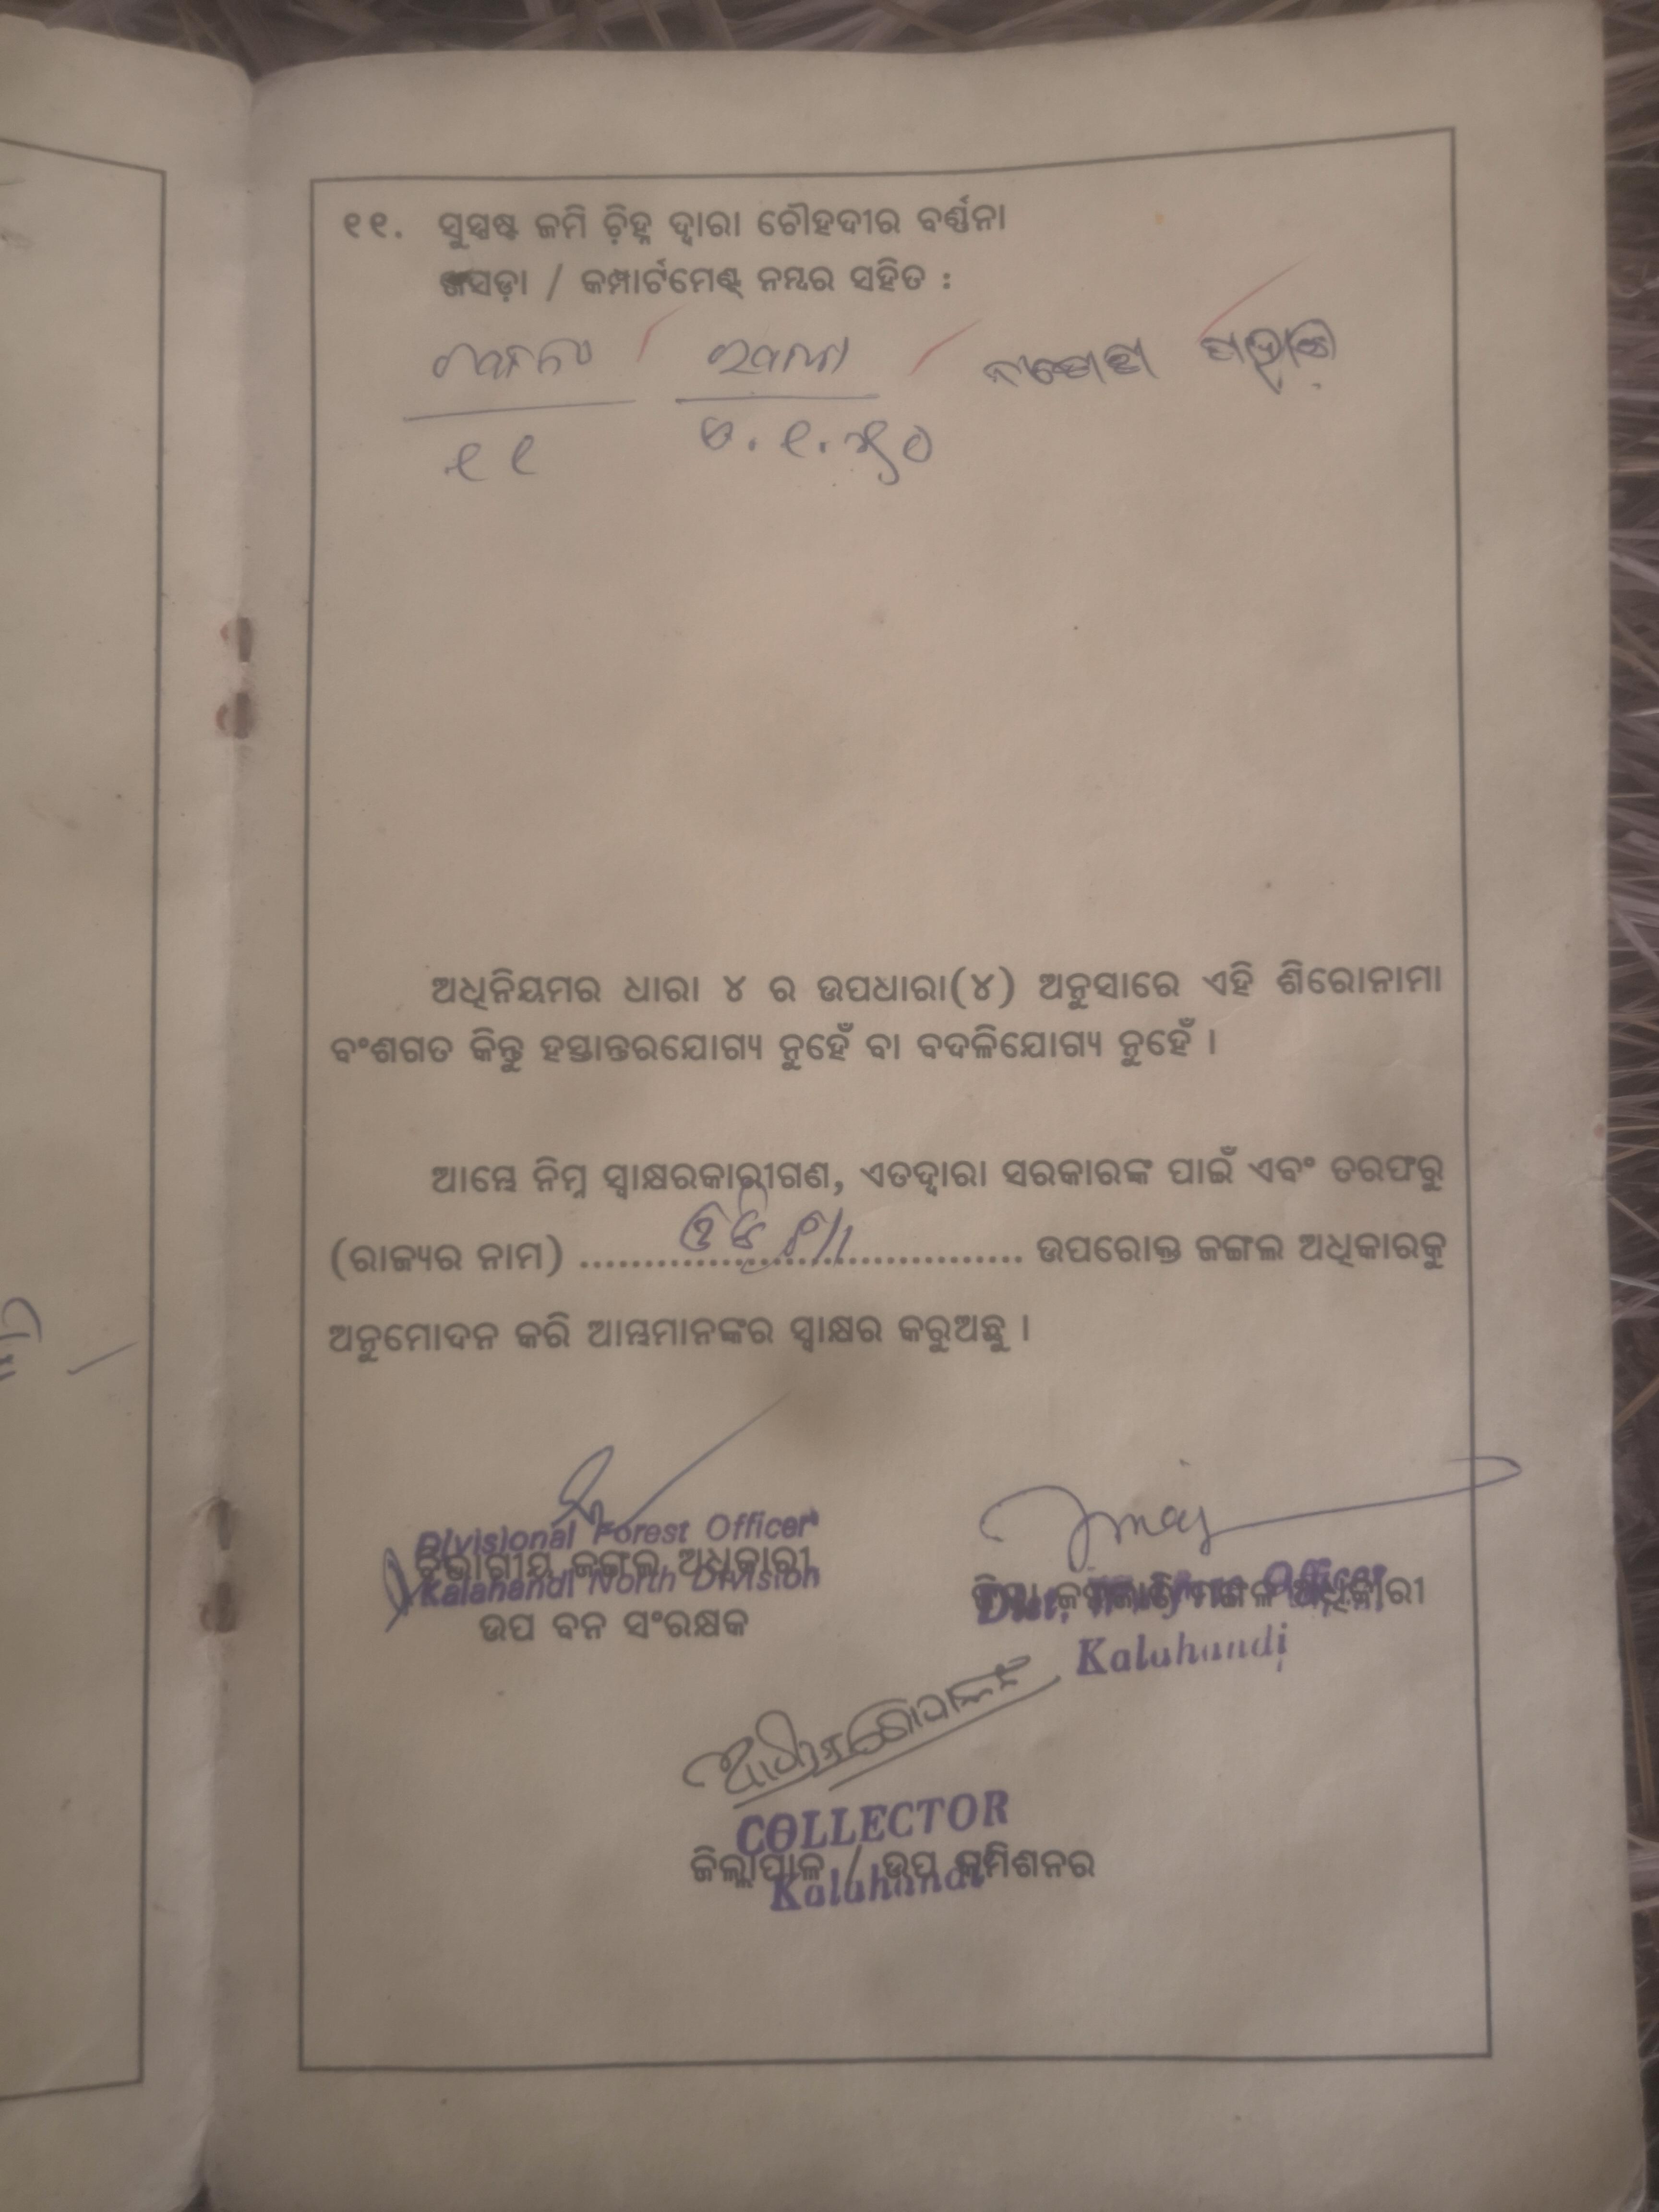 ୧୧. ସୁସ୍ପଷ୍ଟ ଜମି ଚ଼ିହ୍ନ ଦ୍ୱାରା ଚୌହଦୀର ବର୍ଣ୍ଣନା
ଖସଡ଼ା / କମ୍ପାର୍ଟମେଣ୍ଟ୍ ନମ୍ଭର ସହିତ :
୧୧
ଅଧିନିୟମର ଧାରା ୪ ର ଉପଧାରା(୪) ଅନୁସାରେ ଏହି ଶିରୋନାମା
ବଂଶଗତ କିନ୍ତୁ ହସ୍ତାନ୍ତରଯୋଗ୍ୟ ନୁହେଁ ବା ବଦଳିଯୋଗ୍ୟ ନୁହେଁ ।
ଆମ୍ଭେ ନିମ୍ନ ସ୍ୱାକ୍ଷରକାରୀଗଣ, ଏତଦ୍ୱାରା ସରକାରଙ୍କ ପାଇଁ ଏବଂ ତରଫରୁ
(ରାଜ୍ୟର ନାମ) ଓଡ଼ିଶା ଉପରୋକ୍ତ ଜଙ୍ଗଲ ଅଧିକାରକୁ
ଅନୁମୋଦନ କରି ଆମ୍ଭମାନଙ୍କର ସ୍ୱାକ୍ଷର କରୁଅଛୁ ।
Divisional Forest Officer
ବିଭାଗୀୟ ଜଙ୍ଗଲ ଅଧିକାରୀ
Kalahandi North Division
ଉପ ବନ ସଂରକ୍ଷକ
ଜିଲ୍ଲା ମଙ୍ଗଳ ଅଧିକାରୀ
Dist. Welfare Officer
Kalahandi
COLLECTOR
ଜିଲ୍ଲାପାଳ / ଉପ କମିଶନର
Kalahandi